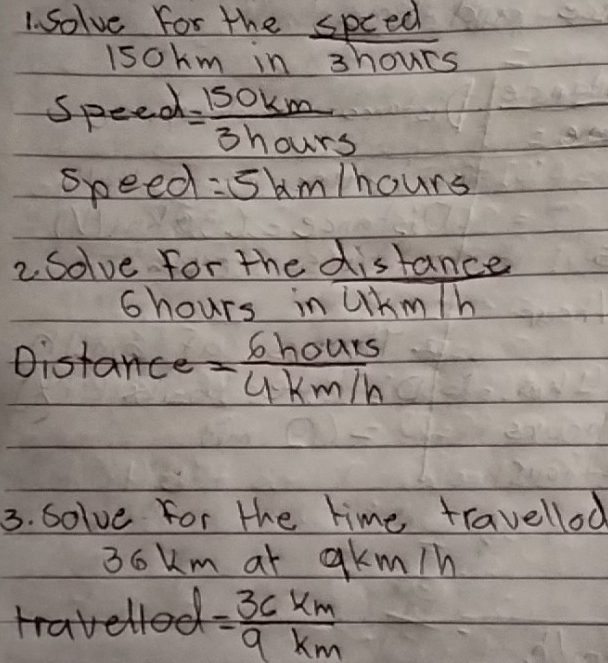 1. Solve for the speed
150km in 3hours
Speed = 150km
3hours
Speed = 5km/hours
2. Solve for the distance
6hours in 4km/h
Distance = 6hours
4km/h
3. Solve for the time travelled
36km at 9km/h
travelled = 36 km
9 km